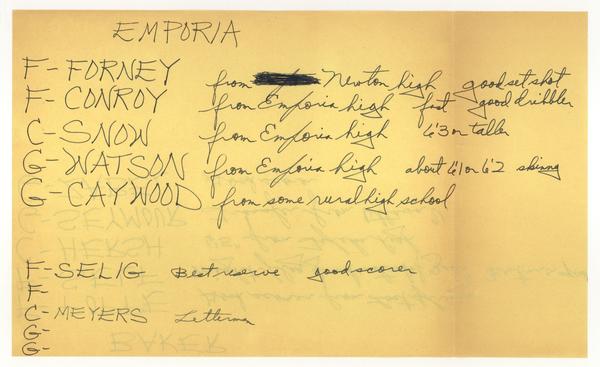 EMPORIA
F-FORNEY from Newton high good set shot
F-CONROY from Emporia high fast good dribbler
C-SNOW from Emporia high 6'3 or taller
G-WATSON from Emporia high about 6'1 or 6'2 skinny
G-CAYWOOD from some rural high school
F-SELIG Best reserve good scorer
F-
C-MEYERS Letterman
G-
G-
SEYMOUR
HERSH
BAKER